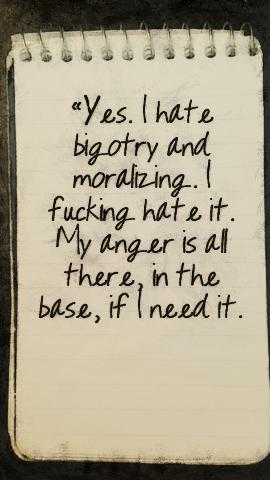 “Yes. I hate
bigotry and
moralizing. I
fucking hate it.
My anger is all
there, in the
base, if I need it.